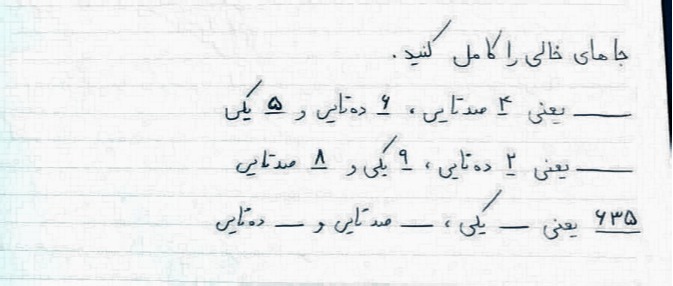 جاهای خالی را کامل کنید.
___ یعنی ۴ صدتایی، ۶ ده‌تایی و ۵ یکی
___ یعنی ۲ ده‌تایی، ۹ یکی و ۸ صدتایی
۶۳۵ یعنی __ یکی، __ صدتایی و __ ده‌تایی